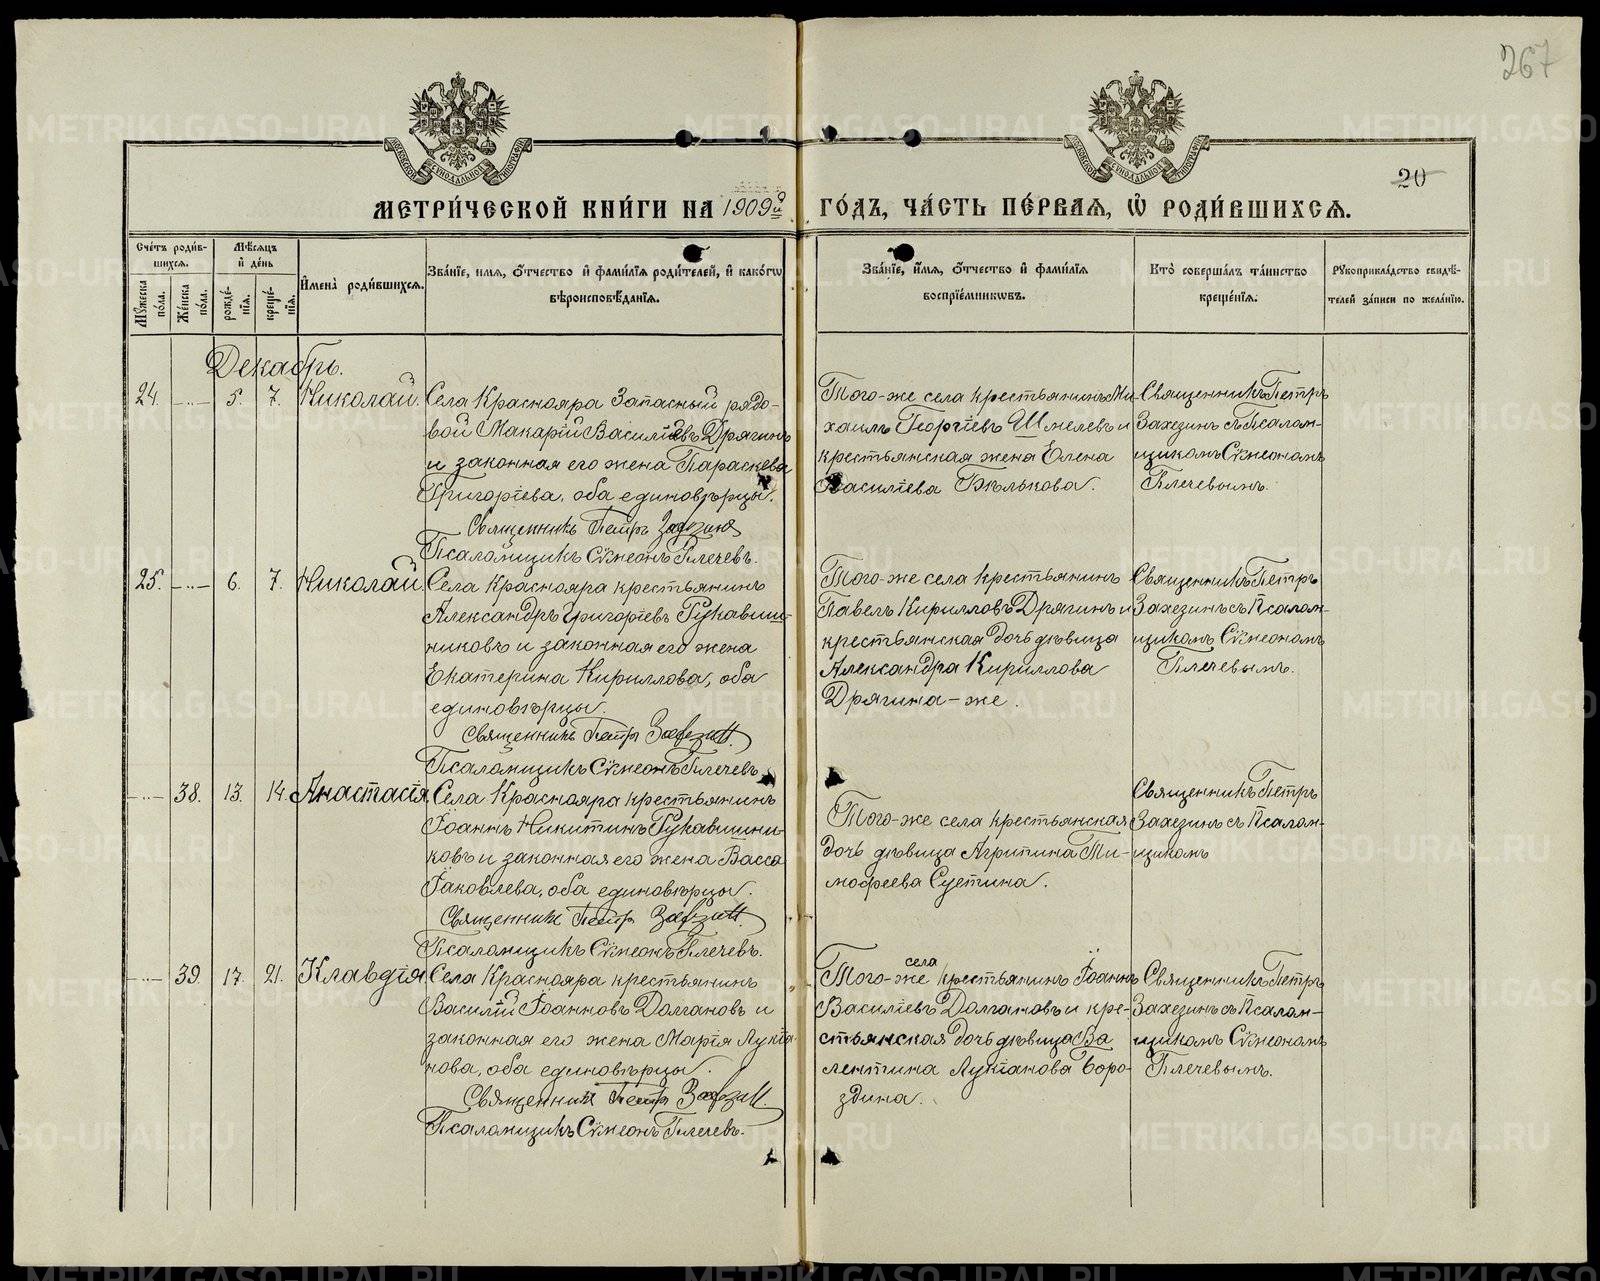 267
МОСКОВСКОЙ СѴНОДАЛЬНОЙ ТИПОГРАФІИ
МОСКОВСКОЙ СѴНОДАЛЬНОЙ ТИПОГРАФІИ
20
МЕТРИ́ЧЕСКОЙ КНИ́ГИ НА 1909й
ГО́ДЪ, ЧА́СТЬ ПЕ́РВАЯ, Ѡ РОДИ́ВШИХСЯ.
Сче́тъ роди́в-
шихся.
Мꙋ́жеска по́ла.
Же́нска по́ла.
Мѣ́сяцъ
и҆ де́нь
рожде́-
нїя.
креще́-
нїя.
И҆мена̀ роди́вшихся.
Зва́нїе, и҆мя, ѻ҆́тчество и҆ фами́лїя роди́телей, и҆ како́гѡ
вѣроисповѣ́данїя.
Зва́нїе, и҆́мя, ѻ҆́тчество и҆ фами́лїя
воспрїе́мникѡвъ.
Кто̀ соверша́лъ та́инство
креще́нїя.
Рꙋкоприкла́дство свидѣ́-
телей за́писи по жела́нїю.
Декабрь.
24. —..— 5. 7. Николай.
Села Краснояра Запасный рядо-
вой Макарій Василіевъ Дрягинъ
и законная его жена Параскева
Григоріева, оба единовѣрцы.
Священникъ Петръ Захезинъ
Псаломщикъ Сѷмеонъ Плечевъ.
Того-же села крестьянинъ Ми-
хаилъ Георгіевъ Шмелевъ и
крестьянская жена Елена
Василіева Бѣлькова.
Священникъ Петръ
Захезинъ съ Псалом-
щикомъ Сѷмеономъ
Плечевымъ.
25. —..— 6. 7. Николай.
Села Краснояра крестьянинъ
Александръ Григоріевъ Рукавиш-
никовъ и законная его жена
Екатерина Кириллова, оба
единовѣрцы.
Священникъ Петръ Захезинъ.
Псаломщикъ Сѷмеонъ Плечевъ.
Того-же села крестьянинъ
Павелъ Кирилловъ Дрягинъ и
крестьянская дочь дѣвица
Александра Кириллова
Дрягина-же.
Священникъ Петръ
Захезинъ съ Псалом-
щикомъ Сѷмеономъ
Плечевымъ.
—..— 38. 13. 14. Анастасія.
Села Краснояра крестьянинъ
Іоаннъ Никитинъ Рукавишни-
ковъ и законная его жена Васса
Іаковлева, оба единовѣрцы.
Священникъ Петръ Захезинъ.
Псаломщикъ Сѷмеонъ Плечевъ.
Того-же села крестьянская
дочь дѣвица Агрипина Ти-
мофеева Суетина.
Священникъ Петръ
Захезинъ съ Псалом-
щикомъ
—..— 39. 17. 21. Клавдія.
Села Краснояра крестьянинъ
Василій Іоанновъ Долгановъ и
законная его жена Марія Лукіа-
нова, оба единовѣрцы.
Священникъ Петръ Захезинъ.
Псаломщикъ Сѷмеонъ Плечевъ.
села
Того-же крестьянинъ Іоаннъ
Василіевъ Долгановъ и кре-
стьянская дочь дѣвица Ва
лентина Лукіанова Боро-
здина.
Священникъ Петръ
Захезинъ съ Псалом-
щикомъ Сѷмеономъ
Плечевымъ.
METRIKI.GASO-URAL.RU